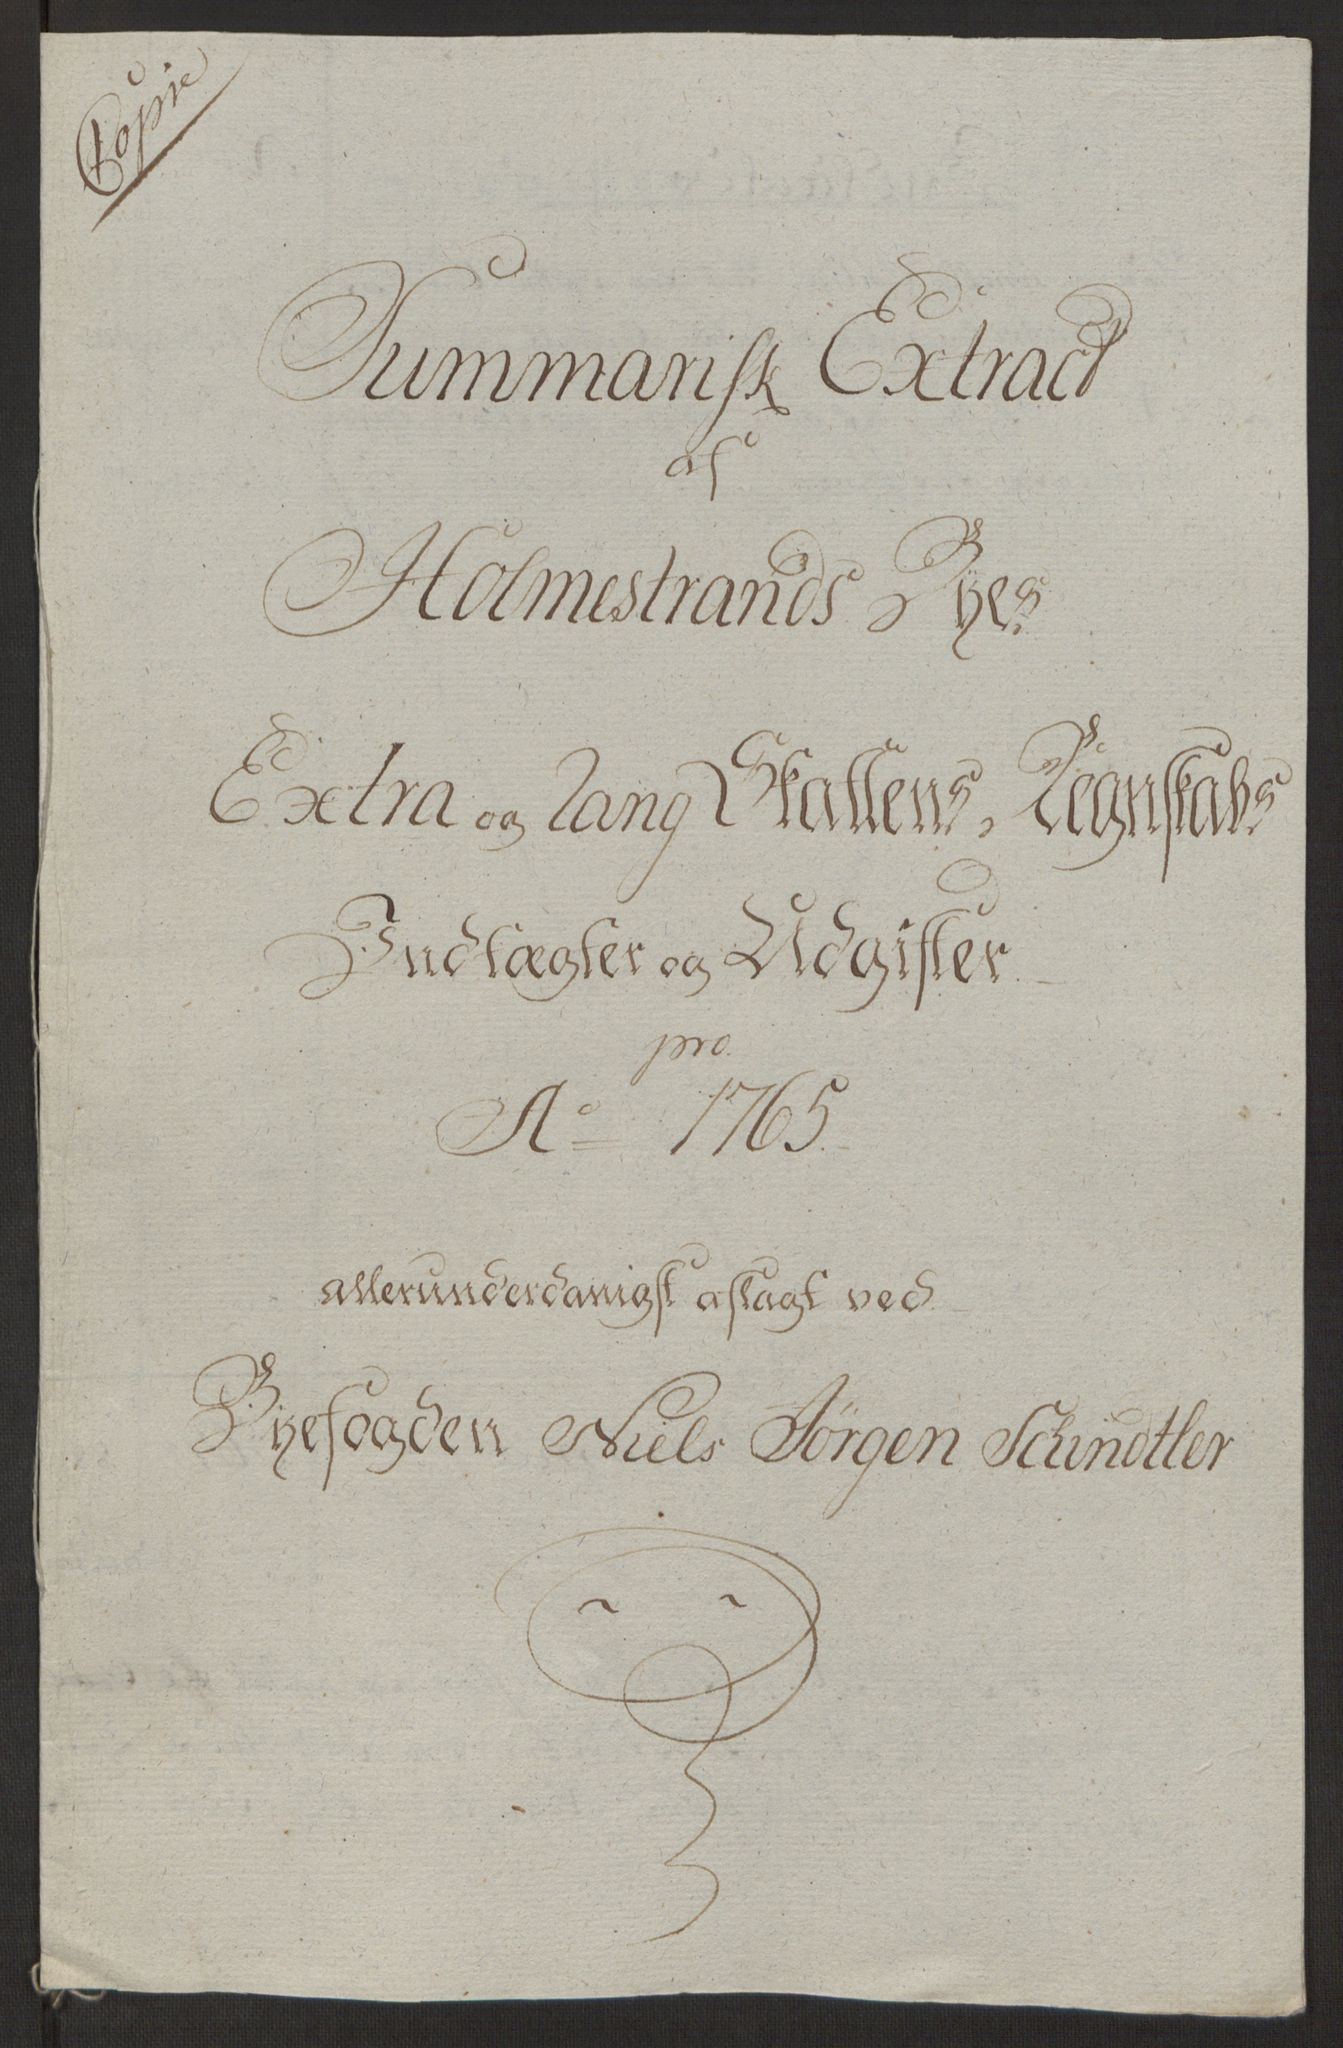 Copie
Summarisk Extract
af
Holmestrands Byes
Extra og lang Skattens, Regnskabs
Indtægter og Udgifter
pro.
Ao 1765.
allerunderdanigst aflagt ved
Byefogden Niels Jörgen Schindtler